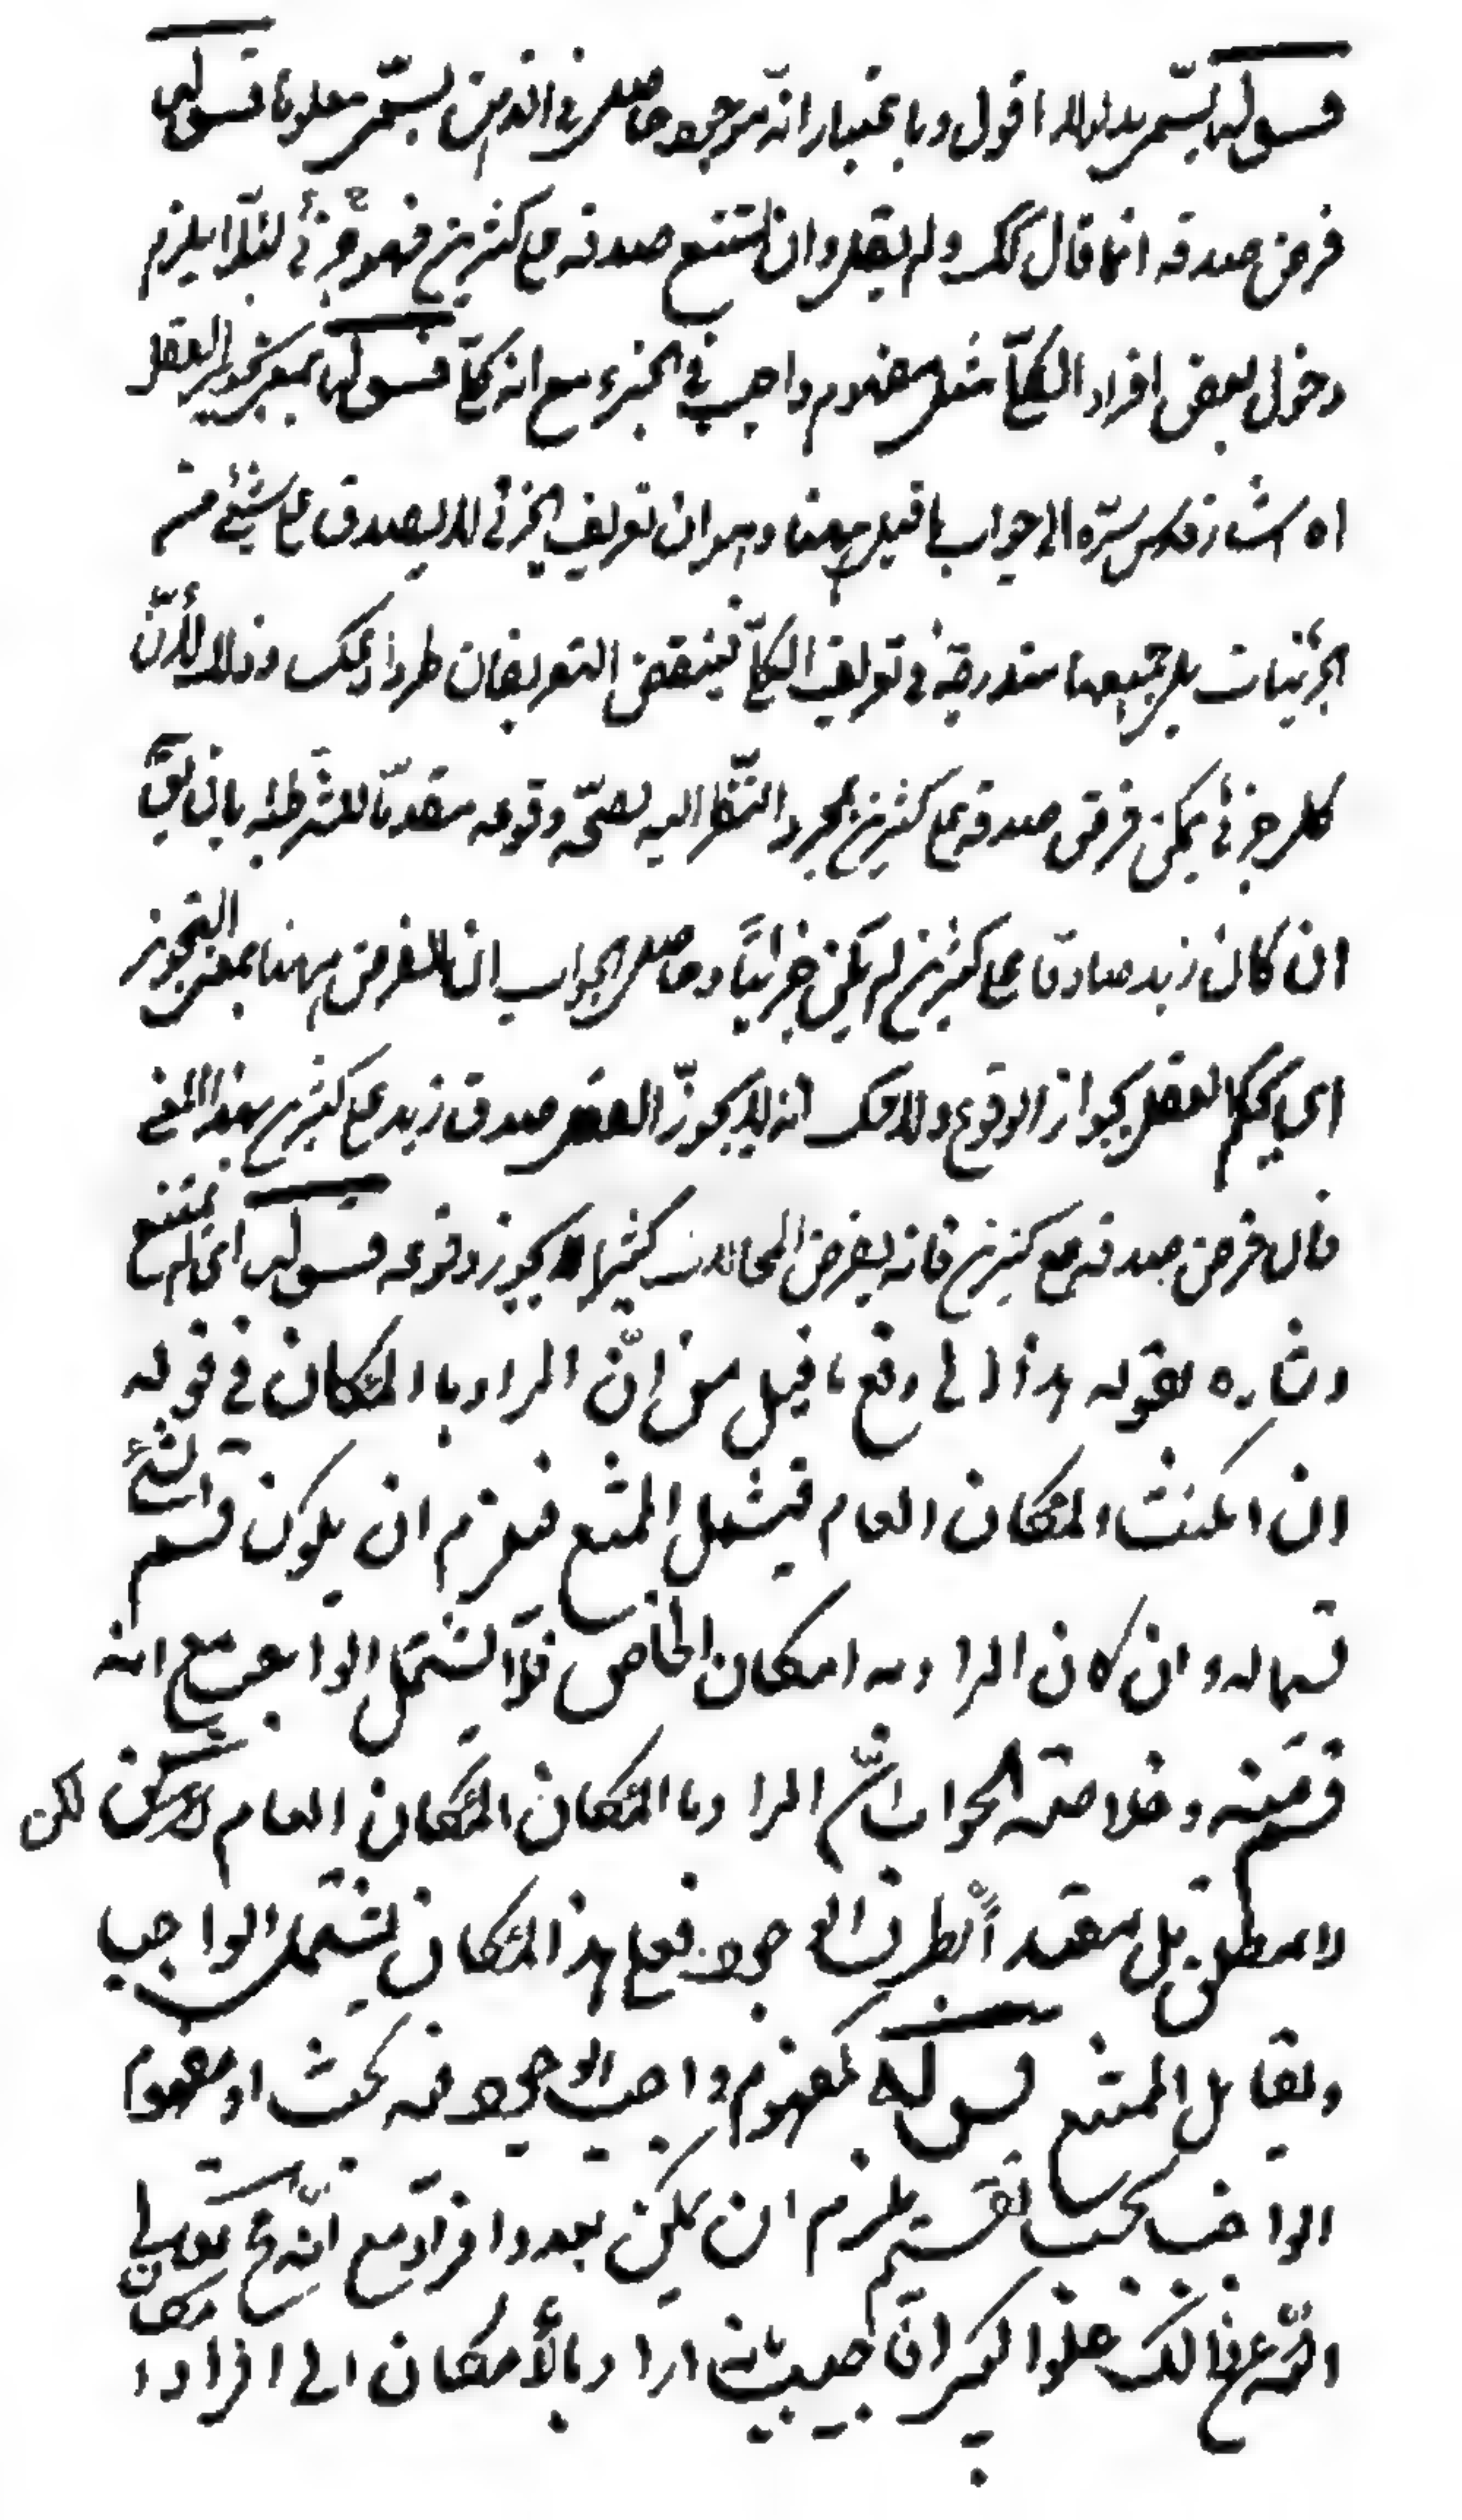 قوله يسمى مدلولا اقول وباعتبار انه موجود حاصل في الذهن يسمى معلوما قوله
فرض صدقه انما قال كك ولم يقل وان امتنع صدقه على كثيرين فهو جزئي لئلا يلزم
دخول بعض افراد الكلي مثل مفهوم واجب في الجزء مع انه كلي قوله بمعنى تجويز العقل
اه اشار قدس سره الى جواب ما قيل ههنا وهو ان تعريف الجزئي لا يصدق على شيئ من
الجزئيات بل جميعها مندرجة في تعريف الكلي فينتقض التعريفان طردا وعكسا وذلك لأن
كل جزئي يمكن فرض صدقه على كثيرين بمجرد النظر اليه لصحة وقوعه مقدما للشرطية بان يقال
ان كان زيد صادقا على كثيرين لم يكن جزئيا وحاصل الجواب ان الفرض ههنا بمعنى التجويز
اي يحكم العقل بجواز الوقوع ولا شك انه لا يجوز العقل صدق زيد على كثيرين بهذا المعنى
فان فرض صدقه على كثيرين فانه يفرض المحالات كثيرا ولا يجوز وقوعه قوله اي لم يمتنع
اشاره بقوله هذا الى دفع ما قيل من ان المراد بالامكان في قوله
ان امكنت الامكان العام فيشمل الممتنع فيلزم ان يكون قسم الشئ
قسيما له وان كان المراد به امكان الخاص فلا يشتمل الواجب مع انه
قسم منه وخلاصة الجواب ان المراد بالامكان الامكان العام لكن
لا مطلق بل مقيد الطرف الوجود فعلى هذا الامكان يشتمل الواجب
ويقابل الممتنع قوله كمفهوم واجب الوجود فيه بحث اذ مفهوم
الواجب بحسب نفسه يلزم ان يكن بعدد افراد مع انه مح تعالى
الله عن ذالك علوا كبيرا اجيب بانه اراد بالأمكان الى افراد امكان